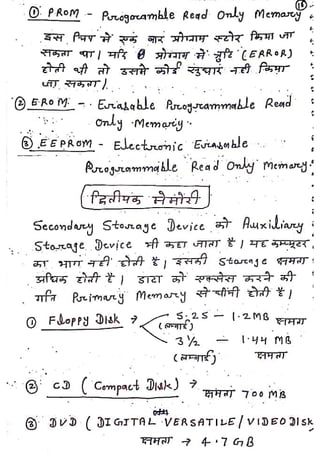 ① PROM - Programable Read Only Memory
इस चिप में एक बार प्रोग्राम स्टोर किया जा
सकता था। यदि प्रोग्राम में त्रुटि (ERROR)
होती थी तो उसमें कोई सुधार नहीं किया
जा सकता।
② EROM - Erasable Programmable Read
Only Memory
③ EEPROM - Electronic Erasable
Programmable Read Only Memory
द्वितीयक मेमोरी
Secondary Storage Device को Auxiliary
Storage Device भी कहा जाता है। यह कम्प्यूटर
का भाग नहीं होती है। इसकी Storage क्षमता
अधिक होती है। डाटा को एक्सेस करने की
गति Primary Memory से धीमी होती है।
① Floppy Disk → 5.25 - 1.2MB क्षमता
(लम्बाई)
3½ - 1.44 MB
(लम्बाई) क्षमता
② CD (Compact Disk) → क्षमता 700 MB
③ DVD (DIGITAL VERSATILE/VIDEO DISK
क्षमता → 4.7 GB